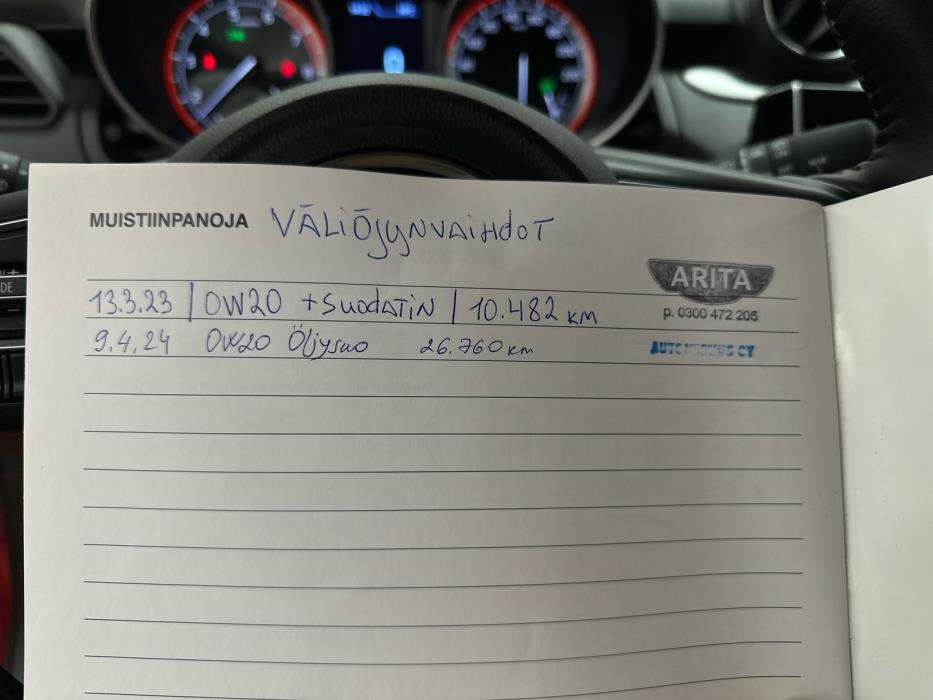 MUISTIINPANOJA VÄLIÖJYNVAIHDOT
ARITA
13.3.23 | 0W20 +SUODATIN | 10.482 KM
p. 0300 472 205
9.4.24 0W20 Öljysuo 26.760 km
DE